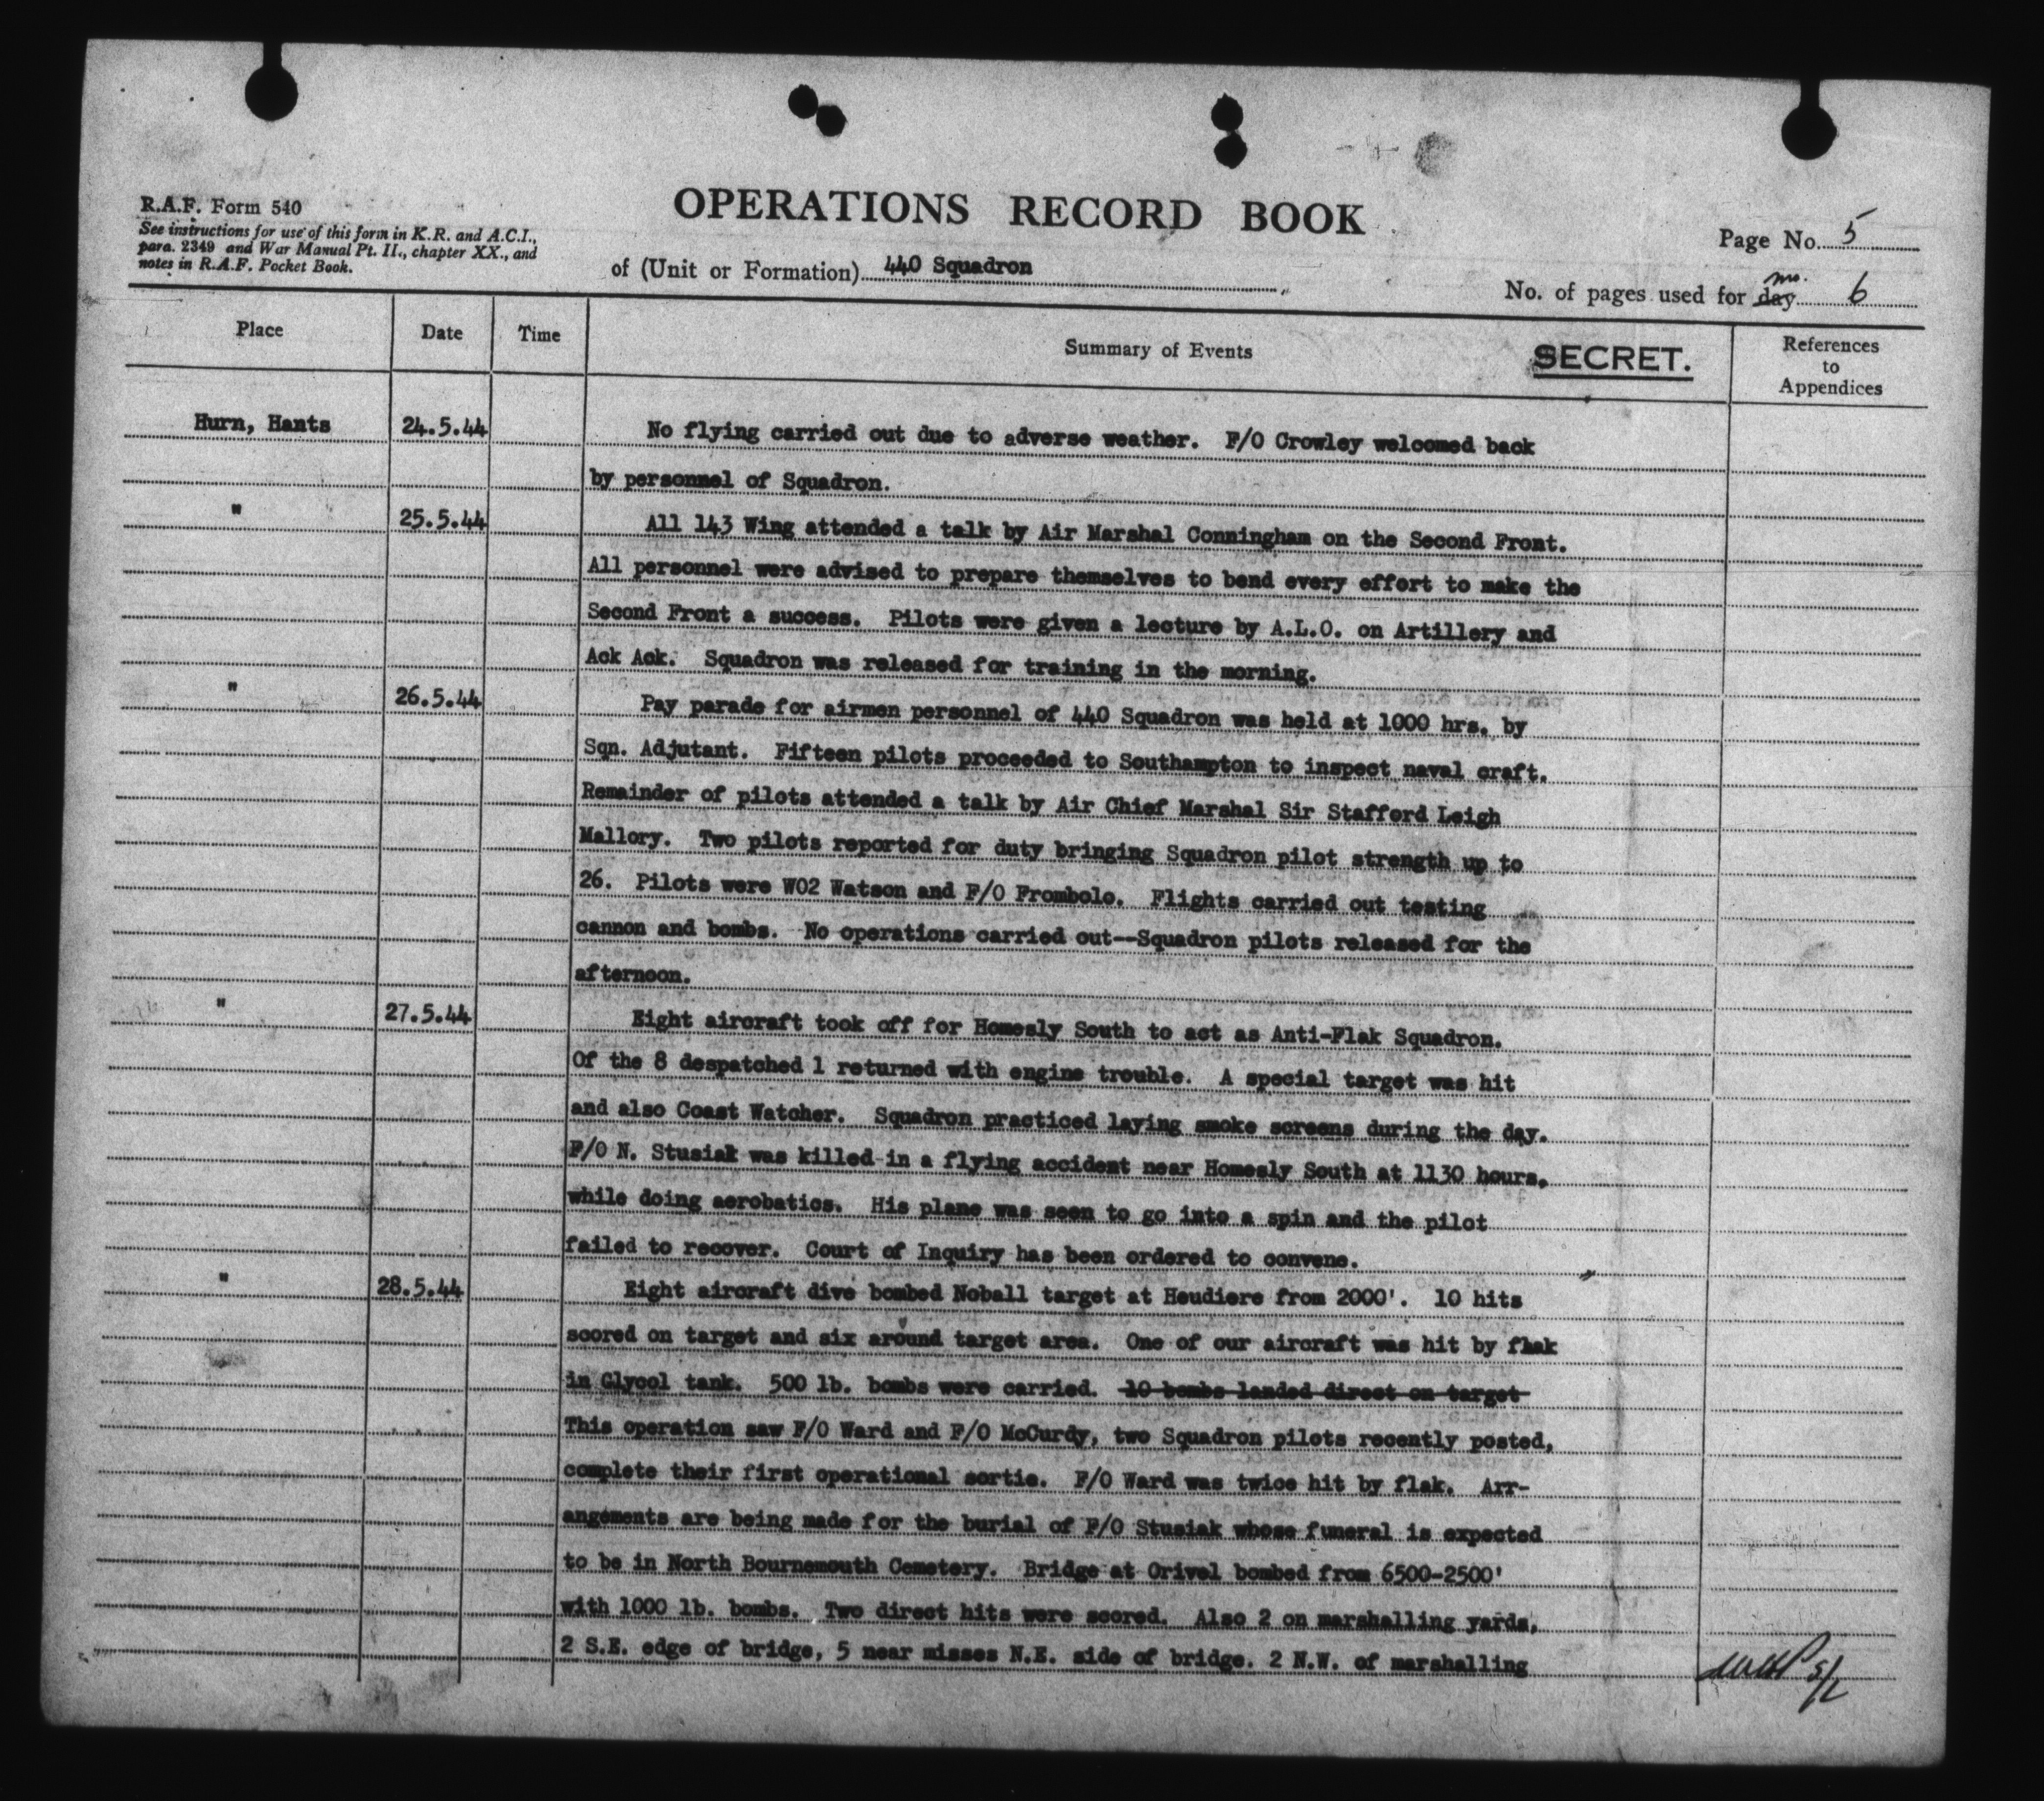 R.A.F. Form 540
See instructions for use of this form in K.R. and A.C.I.,
para. 2349 and War Manual Pt. II., chapter XX., and
notes in R.A.F. Pocket Book.
OPERATIONS RECORD BOOK
of (Unit or Formation) 440 Squadron
Page No. 5
No. of pages used for day mo. 6
Place Date Time Summary of Events SECRET. References to Appendices
Hurn, Hants 24.5.44 No flying carried out due to adverse weather. F/O Crowley welcomed back
by personnel of Squadron.
" 25.5.44 All 143 Wing attended a talk by Air Marshal Conningham on the Second Front.
All personnel were advised to prepare themselves to bend every effort to make the
Second Front a success. Pilots were given a lecture by A.L.O. on Artillery and
Ack Ack. Squadron was released for training in the morning.
" 26.5.44 Pay parade for airmen personnel of 440 Squadron was held at 1000 hrs. by
Sqn. Adjutant. Fifteen pilots proceeded to Southampton to inspect naval craft.
Remainder of pilots attended a talk by Air Chief Marshal Sir Stafford Leigh
Mallory. Two pilots reported for duty bringing Squadron pilot strength up to
26. Pilots were WO2 Watson and F/O Frombolo. Flights carried out testing
cannon and bombs. No operations carried out--Squadron pilots released for the
afternoon.
" 27.5.44 Eight aircraft took off for Homesly South to act as Anti-Flak Squadron.
Of the 8 despatched 1 returned with engine trouble. A special target was hit
and also Coast Watcher. Squadron practiced laying smoke screens during the day.
F/O N. Stusiak was killed in a flying accident near Homesly South at 1130 hours,
while doing aerobatics. His plane was seen to go into a spin and the pilot
failed to recover. Court of Inquiry has been ordered to convene.
" 28.5.44 Eight aircraft dive bombed Noball target at Heudiere from 2000'. 10 hits
scored on target and six around target area. One of our aircraft was hit by flak
in Glycol tank. 500 lb. bombs were carried. 10 bombs landed direct on target
This operation saw F/O Ward and F/O McCurdy, two Squadron pilots recently posted,
complete their first operational sortie. F/O Ward was twice hit by flak. Arr-
angements are being made for the burial of F/O Stusiak whose funeral is expected
to be in North Bournemouth Cemetery. Bridge at Orivel bombed from 6500-2500'
with 1000 lb. bombs. Two direct hits were scored. Also 2 on marshalling yards,
2 S.E. edge of bridge, 5 near misses N.E. side of bridge. 2 N.W. of marshalling
S/L